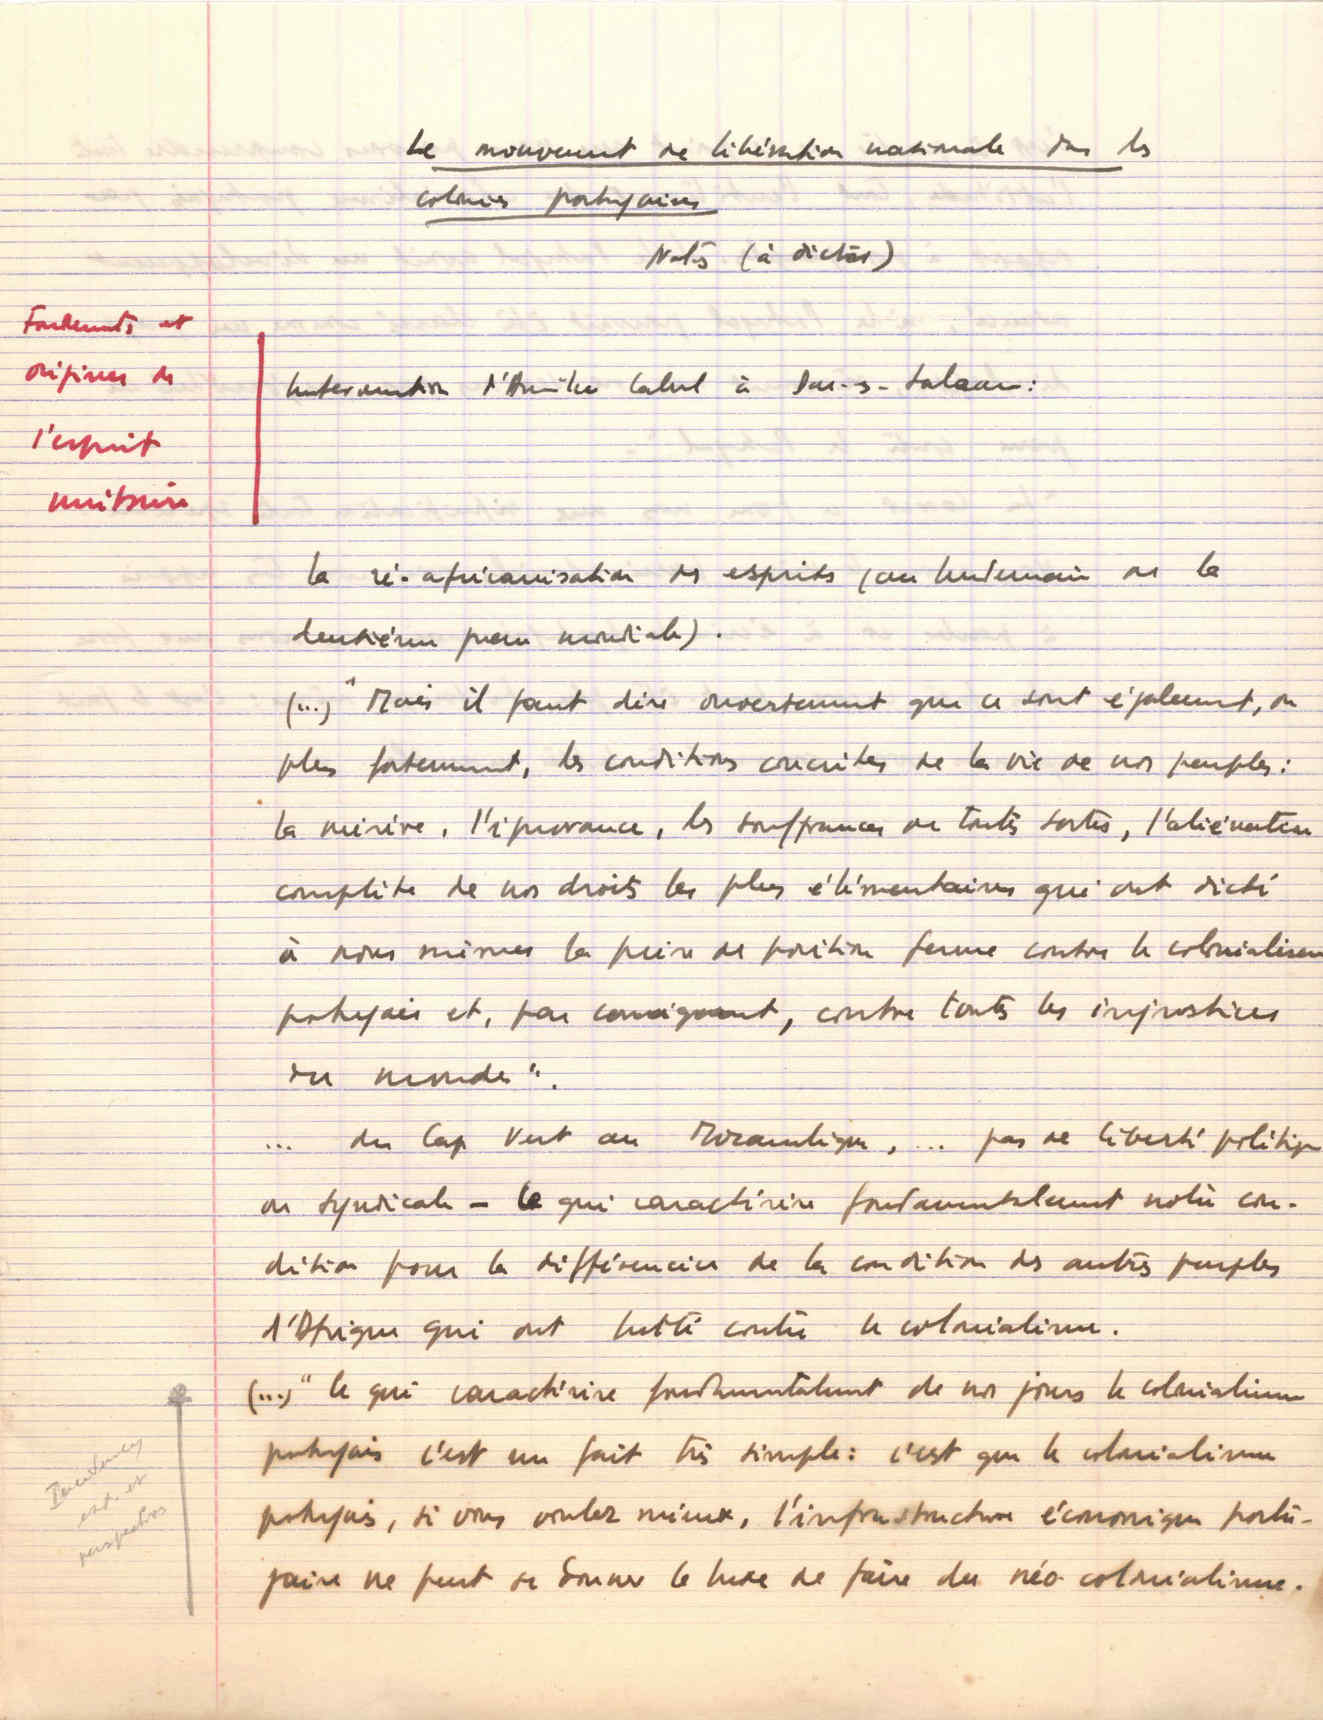 Le mouvement de libération nationale dans les
colonies portugaises
Notes (à dicter)
Fondements et
origines de
l'esprit
unitaire
Intervention d'Amilcar Cabral à Dar-es-Salaam :
La ré-africanisation des esprits (au lendemain de la
deuxième guerre mondiale).
(...) " Mais il faut dire ouvertement que ce sont également, ou
plus fortement, les conditions concrètes de la vie de nos peuples :
la misère, l'ignorance, les souffrances de toutes sortes, l'aliénation
complète de nos droits les plus élémentaires qui ont dicté
à nous mêmes la prise de position ferme contre le colonialisme
portugais et, par conséquent, contre toutes les injustices
du monde".
... du Cap Vert au Mozambique, ... pas de liberté politique
ou syndicale - Ce qui caractérise fondamentalement notre con-
dition pour la différencier de la condition des autres peuples
d'Afrique qui ont lutté contre le colonialisme.
(...) " Ce qui caractérise fondamentalement de nos jours le colonialisme
portugais c'est un fait très simple : c'est que le colonialisme
portugais, si vous voulez mieux, l'infrastructure économique portu-
gaise ne peut se donner le luxe de faire du néo-colonialisme.
et